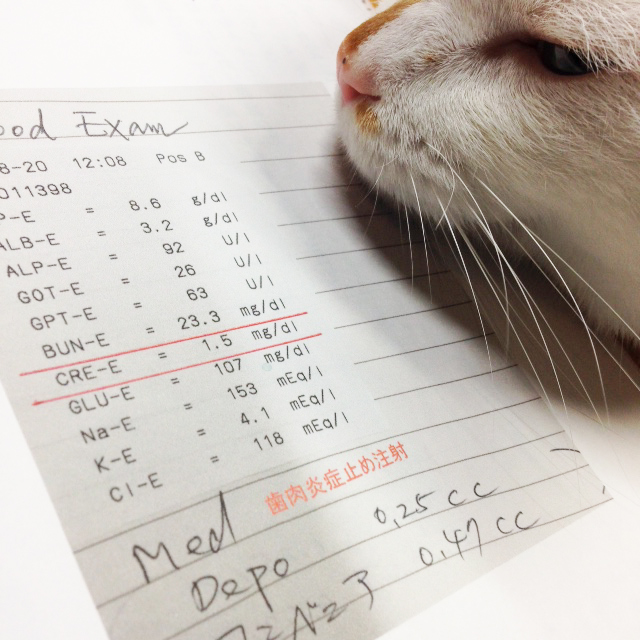 ood Exam
8-20 12:08 Pos B
011398
P-E = 8.6 g/dl
ALB-E = 3.2 g/dl
ALP-E = 92 U/l
GOT-E = 26 U/l
GPT-E = 63 U/l
BUN-E = 23.3 mg/dl
CRE-E = 1.5 mg/dl
GLU-E = 107 mg/dl
Na-E = 153 mEq/l
K-E = 4.1 mEq/l
Cl-E = 118 mEq/l
歯肉炎症止め注射
Med
Depo 0.25cc
0.47cc